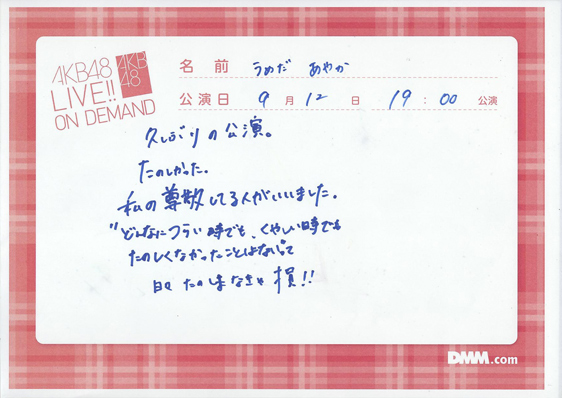 AKB48
LIVE!!
ON DEMAND
AKB
48
名前 うめだ あやか
公演日 9月12日 19:00 公演
久しぶりの公演。
たのしかった。
私の尊敬してる人がいいました。
"どんなにつらい時でも、くやしい時でも
たのしくなかったことはない"って
日々たのしまなきゃ損!!
DMM.com